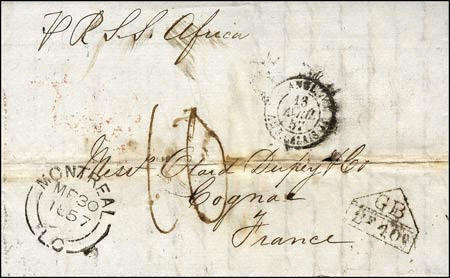 P R S. S. Africa
ANGL.
13
AVRIL
57
CALAIS
16
Messrs Otard Dupuy & Co
Cognac
France
MONTREAL
MR 30
1857
L.C.
GB
1F 60C